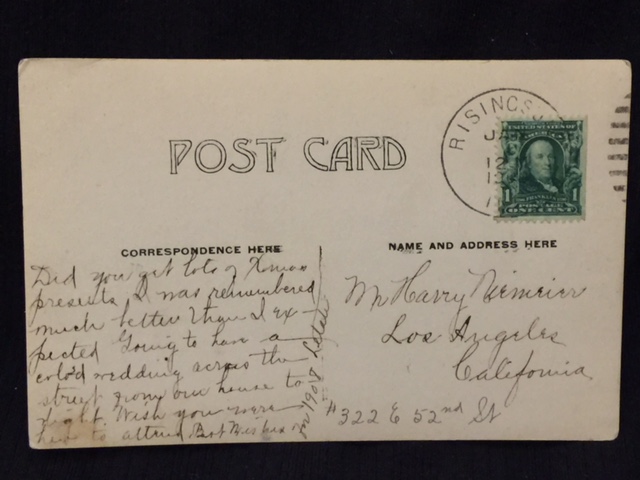 POST CARD
RISINGS
JAN
12
UNITED STATES OF
1 1
POSTAGE
ONE CENT
CORRESPONDENCE HERE
NAME AND ADDRESS HERE
Did you get lots of Xmas
presents, I was remembered
much better than I ex-
pected Going to have a
cold wedding across the
street from our house to
night. Wish you were
here to attend Best Wishes
Mr Harry Niemeier
Los Angeles
California
#322 E 52nd St